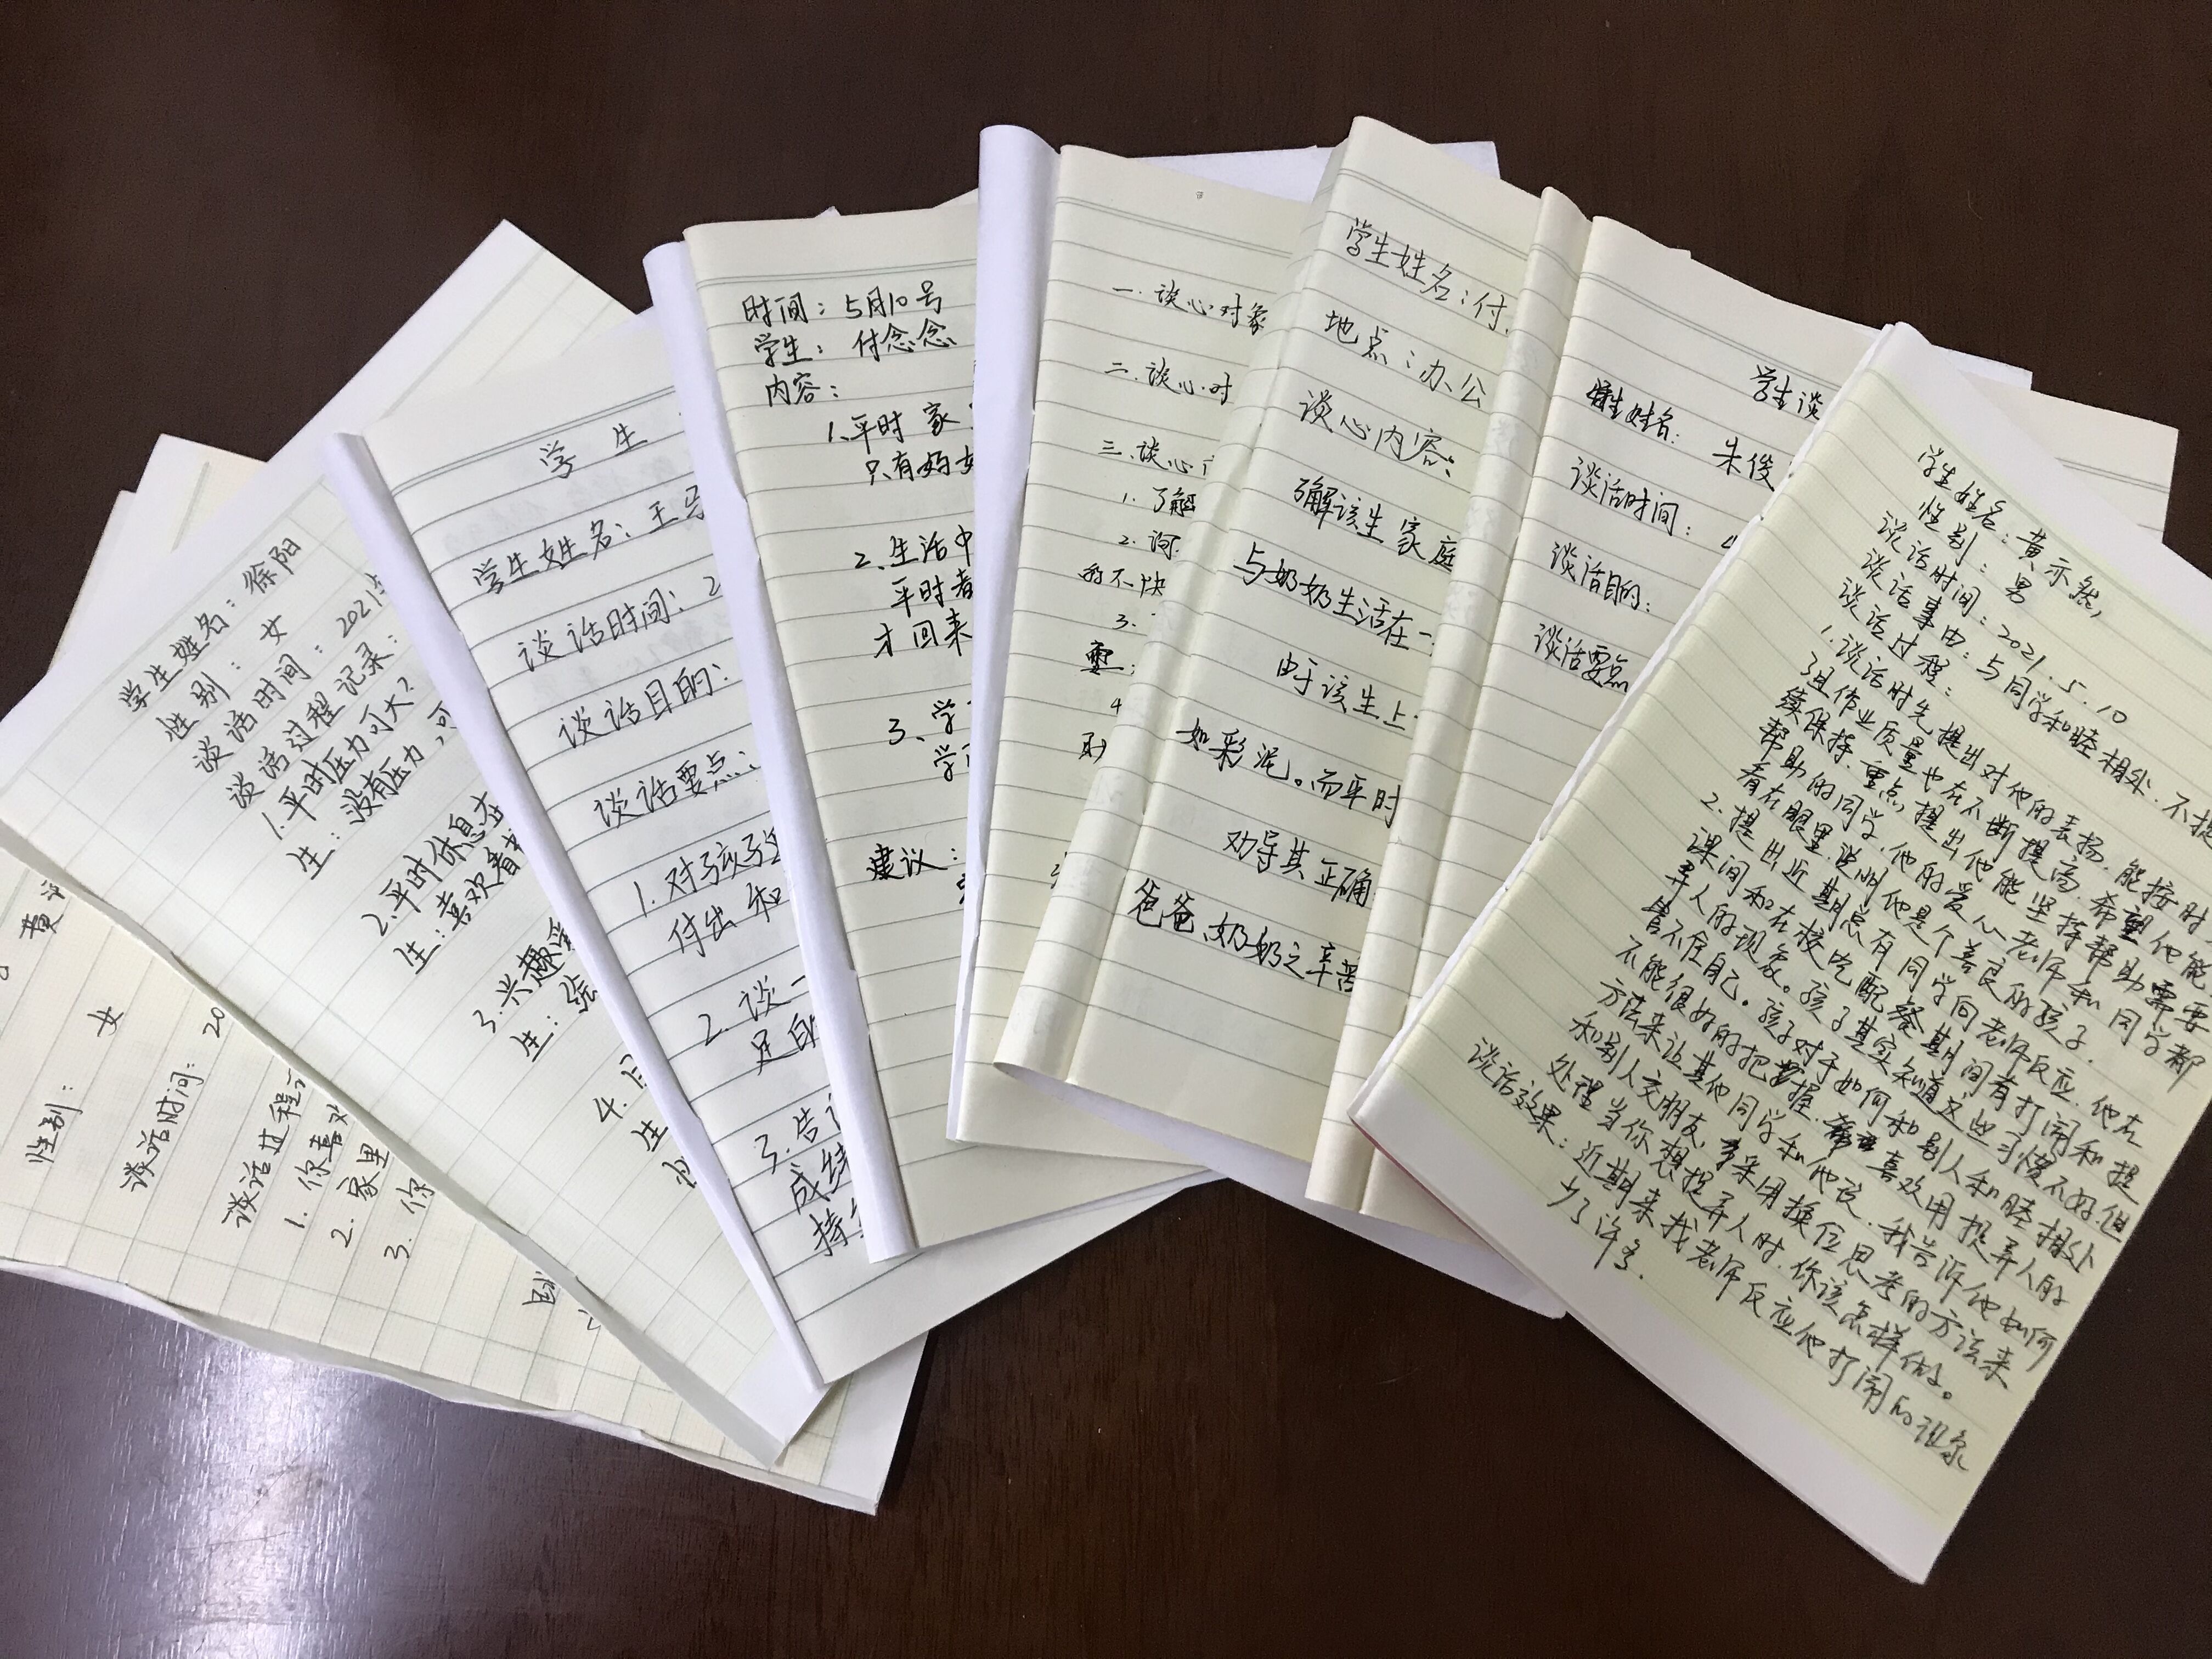 性别： 女
谈话时间： 20
谈话过程
1. 你喜欢
2. 家里
3. 你
学生姓名：徐阳
性别：女
谈话时间：2021年
谈话过程记录：
1.平时压力可大？
生：没有压力，可
2.平时休息在
生：喜欢看
3.兴趣爱
生：绘
4.
生
学 生
学生姓名：王
谈话时间：2
谈话目的：
谈话要点：
1.对孩
付出和
2.谈一
足的
3.告
成绩
持
时间：5月10号
学生：付念念
内容：
1.平时家
只有妈
2.生活中
平时看
才回来
3、学
学
建议：
一.谈心对象
二.谈心时
三.谈心
1.了解
2.询
的不快
3.
4
学生姓名：付
地点：办公
谈心内容：
了解该生家庭
与奶奶生活在一
由于该生上
如彩泥。而平时
劝导其正确
爸爸、奶奶之辛苦
学生谈
学生姓名： 朱俊
谈话时间： 4
谈话目的：
谈话要点
学生姓名：黄示然
性别：男
谈话时间：2021.5.10
谈话事由：与同学和睦相处.不捉
谈话过程：
1.谈话时先提出对他的表扬.能按时
了且作业质量也在不断提高.希望他能
续保持.重点提出他能坚持帮助需要
帮助的同学.他的爱心老师和同学都
看在眼里.说明他是个善良的孩子.
2.提出近期总有同学向老师反应.他在
课间和在校吃配餐期间有打闹和捉
弄人的现象。孩子其实知道这些习惯不好.但
管不住自己。孩子对于如何和别人和睦相处
不能很好的把握.喜欢用捉弄人的
方法来让其他同学和他说.我告诉他如何
和别人交朋友.多采用换位思考的方法来
处理当你想捉弄人时.你该怎样做。
谈话效果：近期来找老师反应他打闹的现象
少了许多.